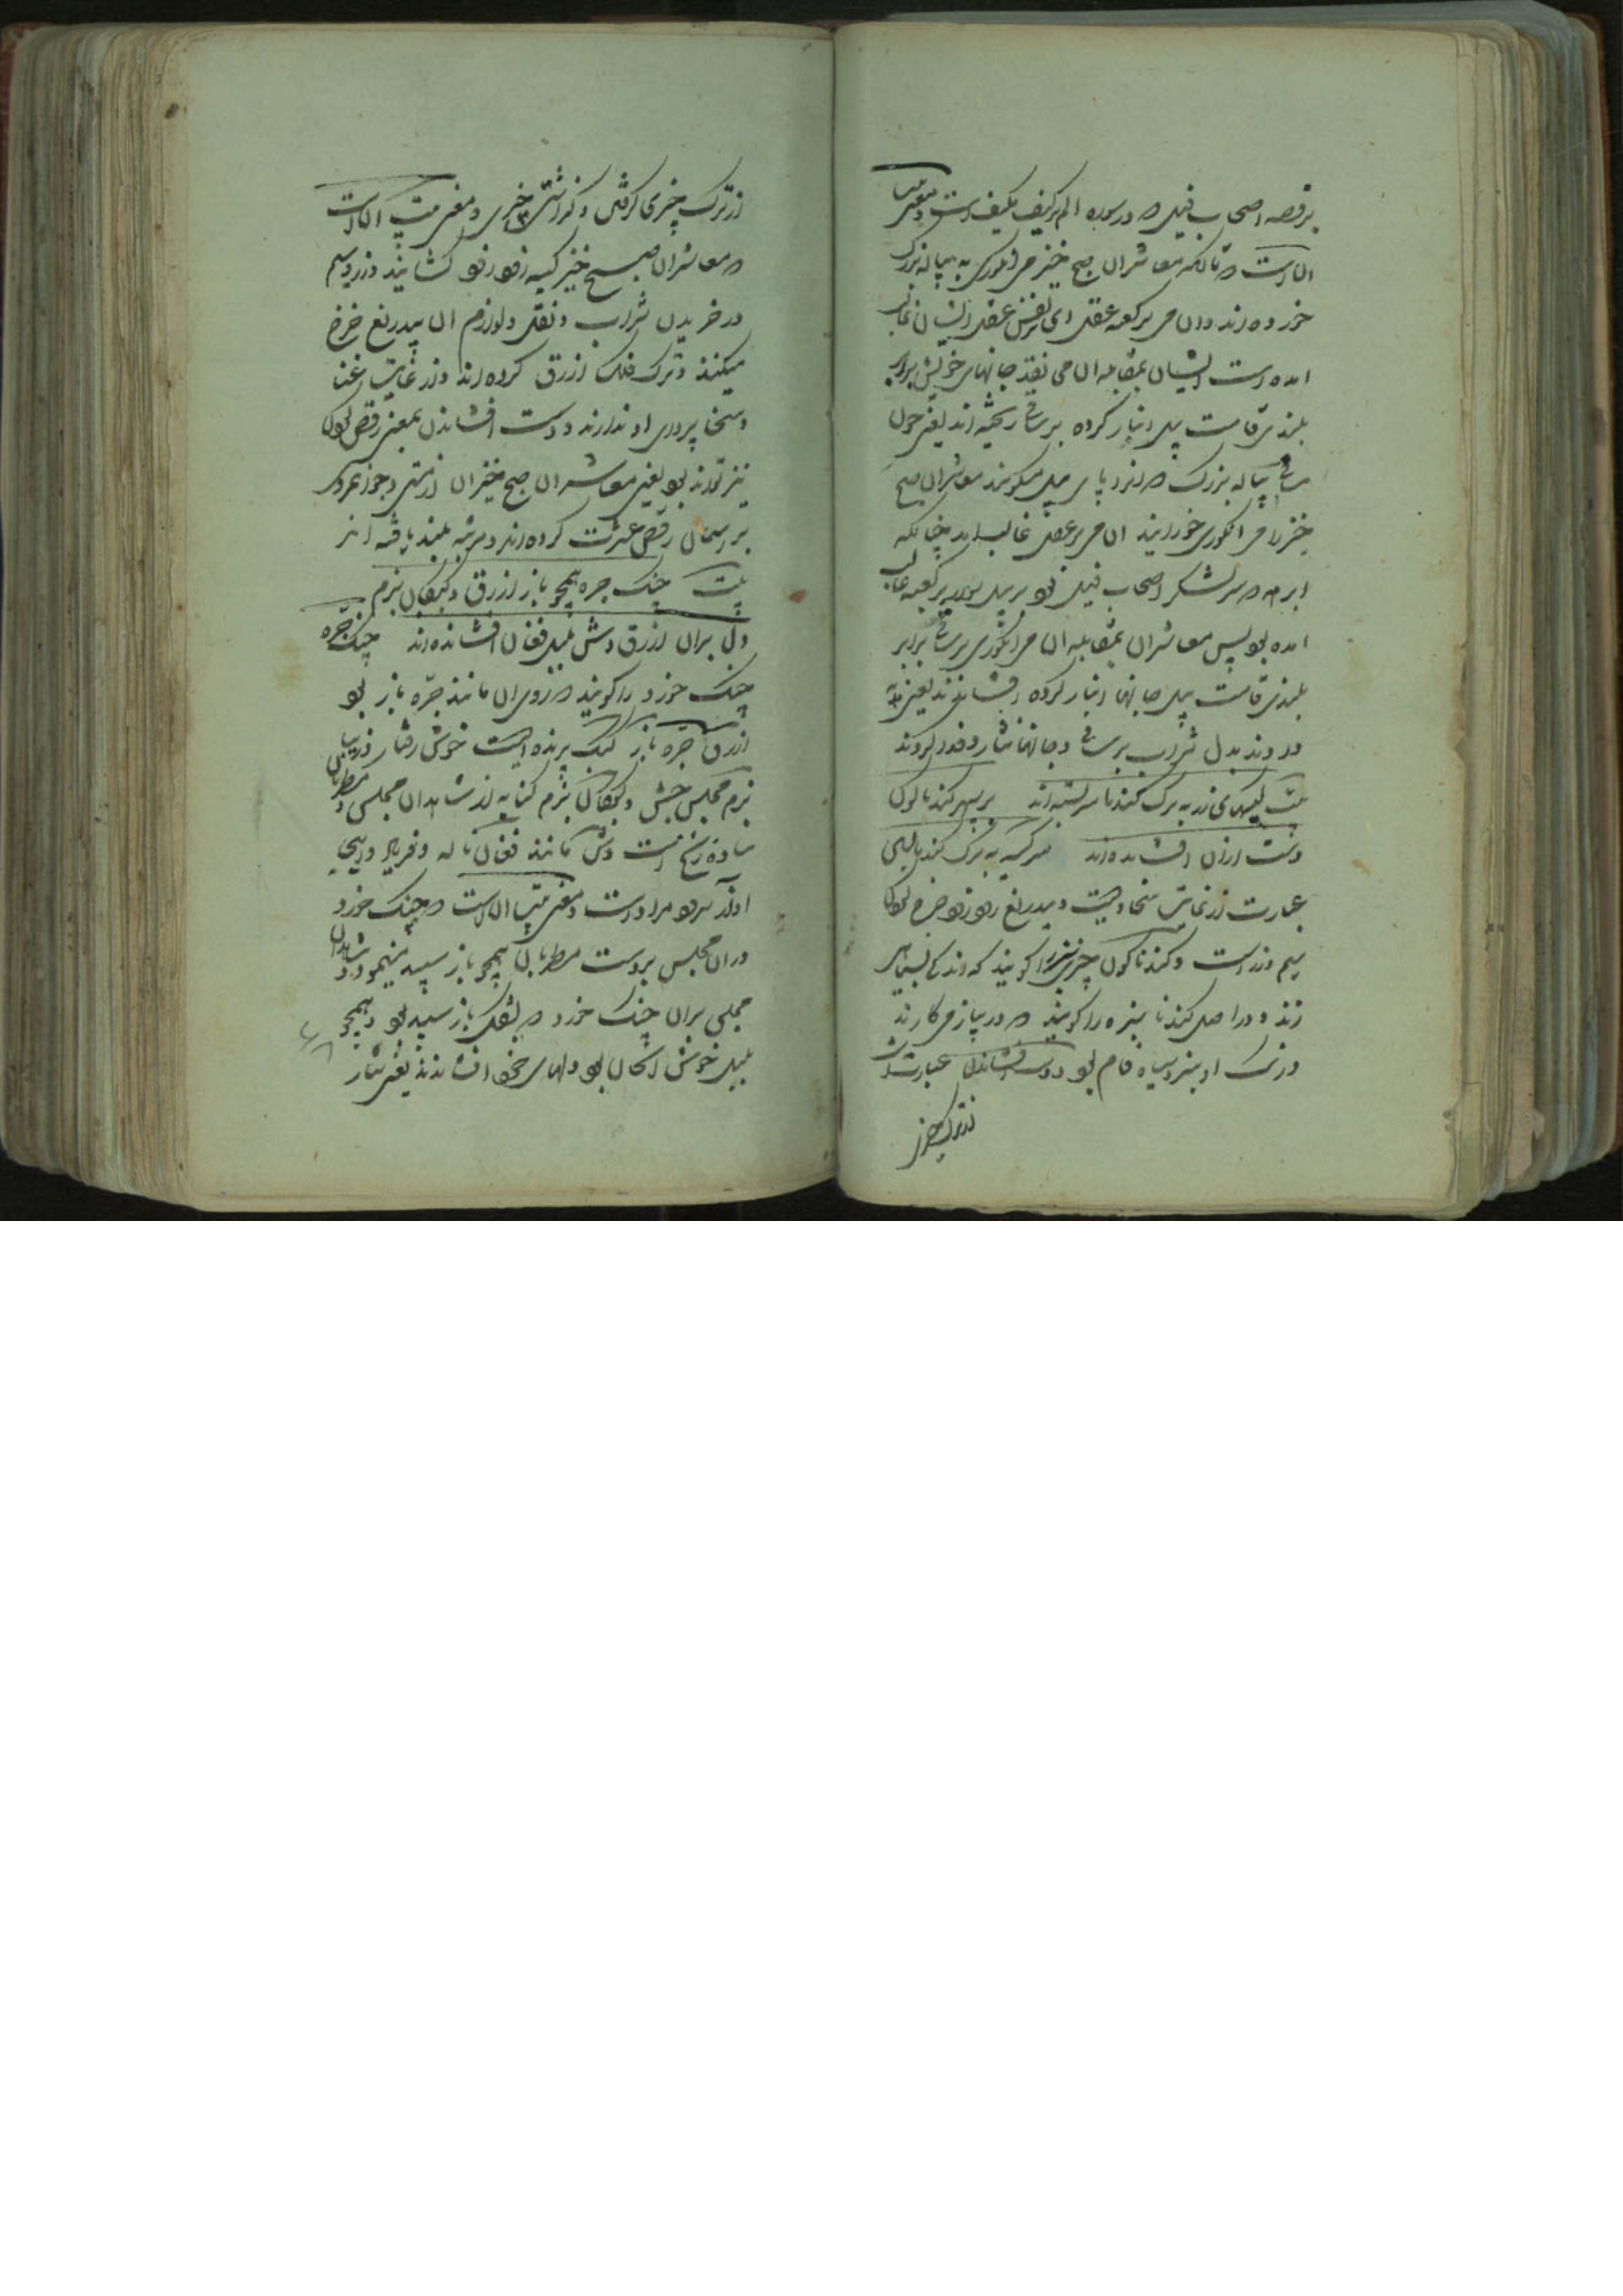 بر قصه اصحاب فیل که در سوره الم تر کیف مکیف است و معنی بیت
آن است که تا آنکه معاشران صبح خیز می انگوری به پیاله بزرگ
خورده اند و آن می بر کعبه عقل ای بر نفس عقل ایشان غالب
آمده است ایشان بمقابله آن می نقد جانهای خویش برابر
بلندی قامت پیل انبار کرده بر ساقی ریخته اند یعنی چون
ساقی پیاله بزرگ که آنرا پای پیل میگویند معاشران صبح
خیز را می انگوری خورانید آن می بر عقل غالب آمد چنانکه
ابرهه که سر لشکر اصحاب فیل بود بر پیل سوار بر کعبه غالب
آمده بود پس معاشران بمقابله آن می انگوری بر ساقی برابر
بلندی قامت پیل جانها انبار کرده افشاندند یعنی
دادند بدل شراب بر ساقی و جانها نثار و فدا کردند
بیت کیسهای زر به برگ گندنا سر بسته اند بر سپهر گندناگون
دست ازان افشانده اند سر کیسه به برگ گندنا بستن
عبارت از غایت سخاوتست و بیدریغ خرج بودن
سیم و زر است و گندناگون چیزی سبز را گویند که اندک بسیاهی
زند و در اصل گندنا سبزه را گویند که در پیاز می کارند
و رنگ او سبز و سیاه فام بود و دست افشاندن عبارت
از ترک چیزی
از ترک چیزی گرفتن و گذاشتن چیزی و معنی بیت آن است
که معاشران صبح خیز کیسه کشایند و زر و سیم
در خریدن شراب و نقل و لوازم آن بیدریغ خرج
میکنند و ترک فلک ازرق کرده اند و از غایت غنا
و سخا پروای او ندارند و دست افشاندن بمعنی رقص بودن
نیز تواند بود یعنی معاشران صبح خیزان از مستی و جوانمردی
بر آسمان رقص عشرت کرده اند و مرتبه بلند یافته اند
بیت چنگ جره همچو باز ازرق و کبکان بزم
دل بران ازرق وش بلبل فغان افشانده اند چنگ جره
چنگ خورد را گویند که روی آن مانند جره باز بود
ازرق جره باز کبک پرنده ایست خوش رفتار و زیبا
بزم مجلس جشن و کبکان بزم کنایه از شاهدان مجلس و مطربان
ساده رخ است وش مانند فغان ناله و فریاد و اینجا
آواز سرود مراد است و معنی بیت آن است که چنگ خورد
در آن مجلس بدست مطربان همچو باز سپید مینمود و شاهدان
مجلس بران چنگ خورد که بشکل باز سپید بود و همچو
بلبل خوش الحان بود دلهای خود افشاندند یعنی نثار